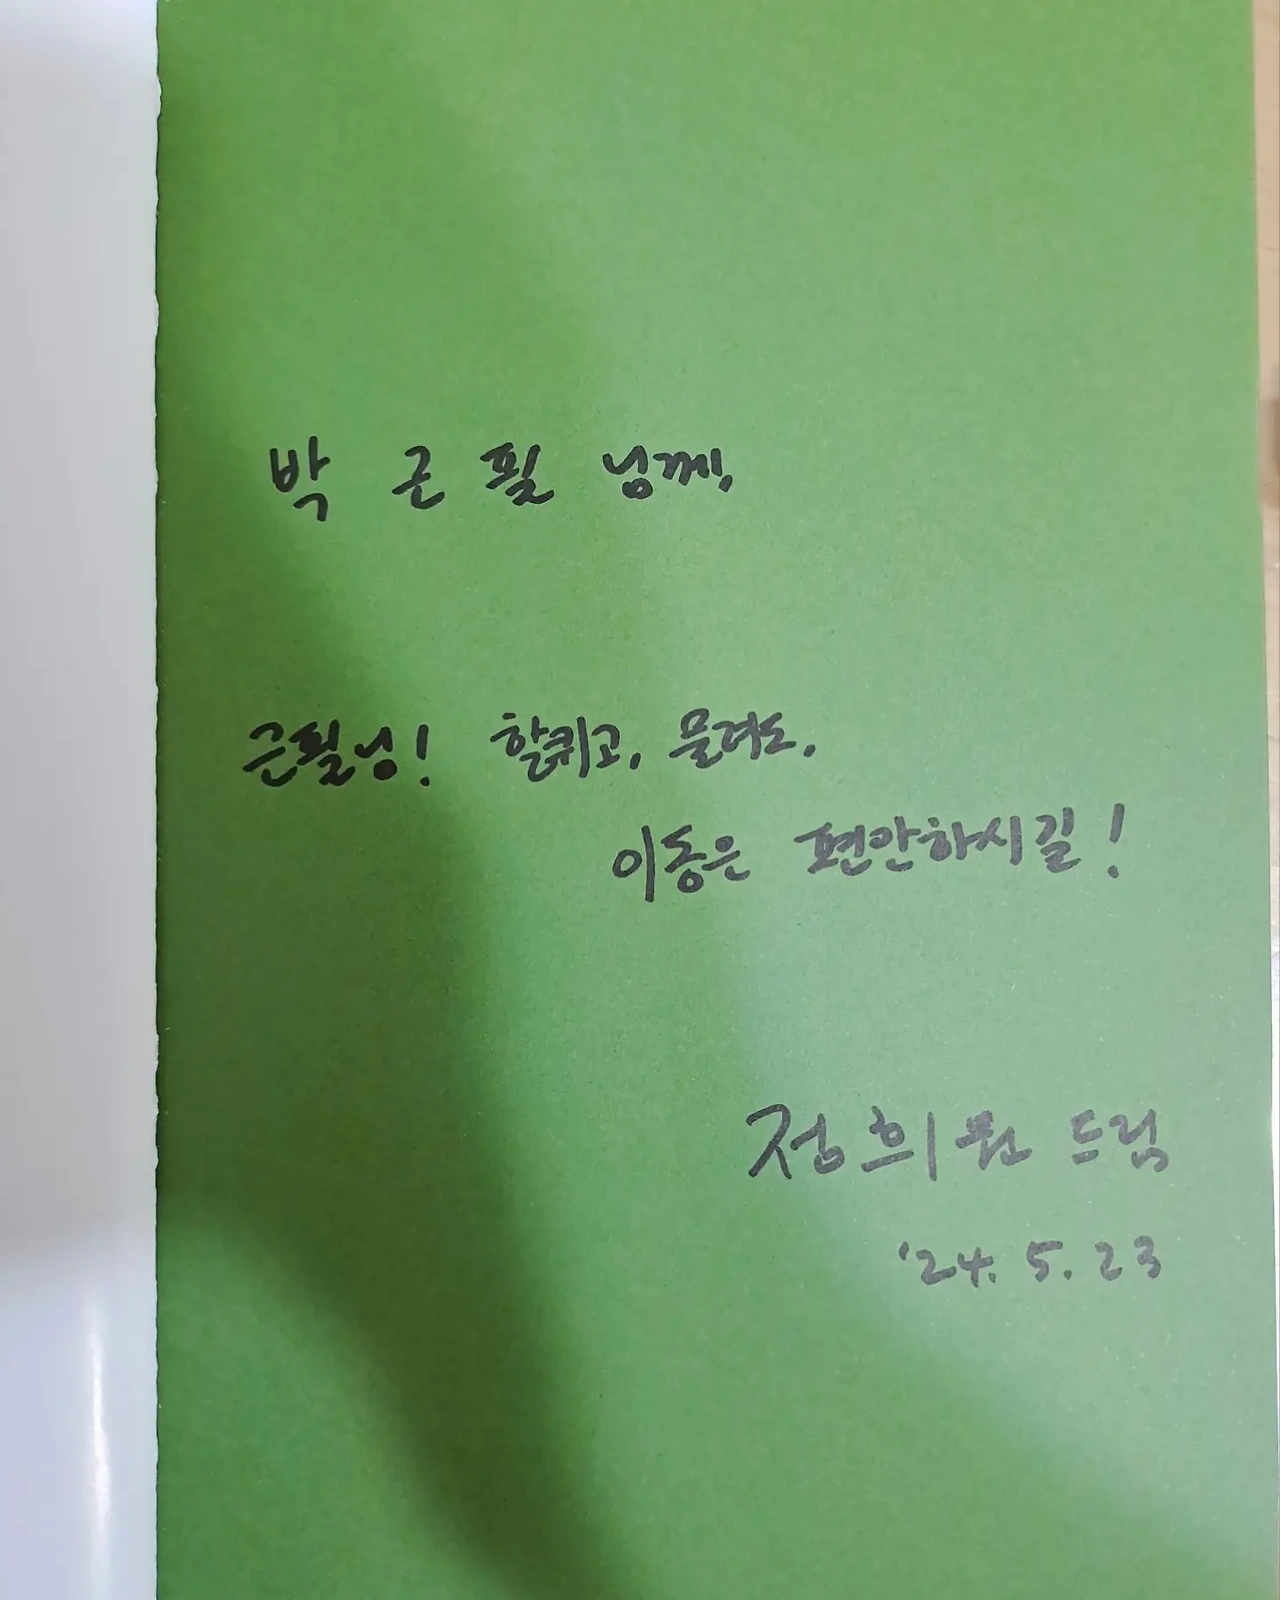 박 근 필 님께,
근필님! 할퀴고, 물려도,
이동은 편안하시길!
정희원 드림
'24. 5. 23